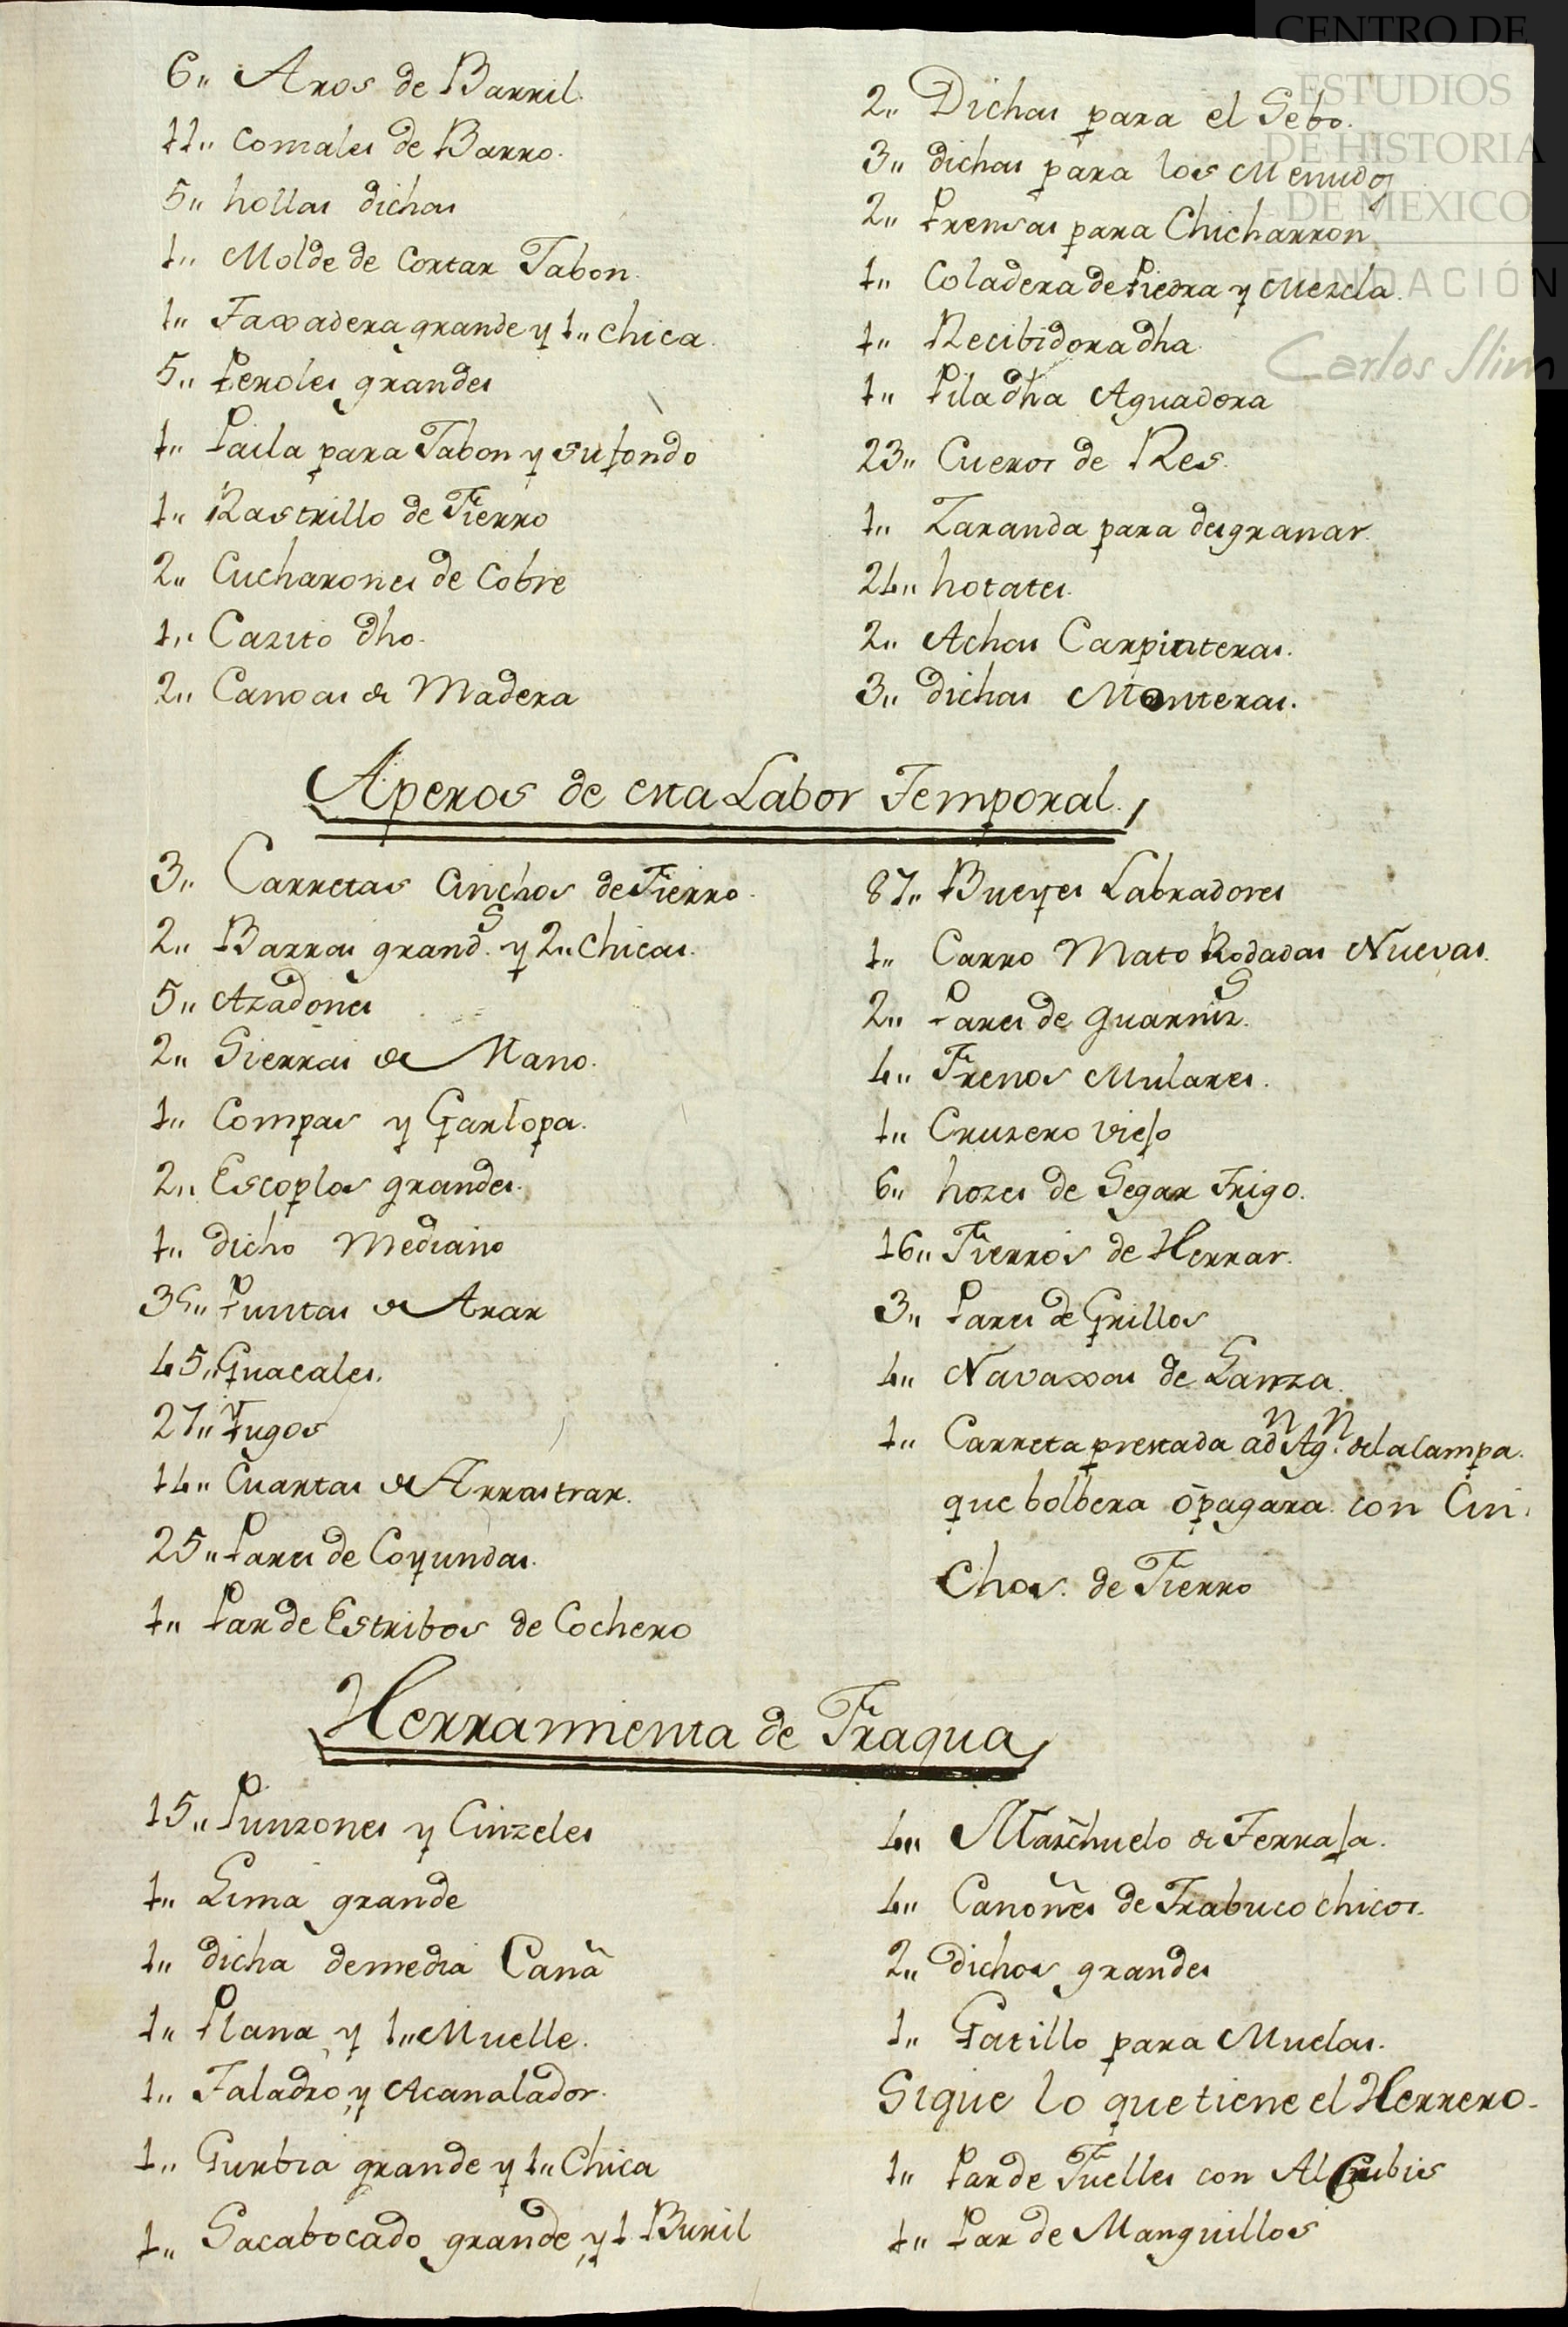 6,, Aros de Barril.
11,, Comales de Barro.
5,, hollas dichas
1,, Molde de Cortar Jabon.
1,, Taxadera grande y 1,, chica.
5,, Peroles grandes
1,, Paila para Jabon y su fondo
1,, Rastrillo de Fierro
2,, Cucharones de Cobre
1,, Cazito dho.
2,, Canoas de Madera
2,, Dichas para el Sebo.
3,, dichas para los Menudos
2,, Prensas para Chicharron
1,, Coladera de Piedra y Mezcla.
1,, Recibidora dha.
1,, Pila dha Aguadora
23,, Cueros de Res.
1,, Zaranda para desgranar.
24,, hotates.
2,, Achas Carpinteras.
3,, dichas Monteras.
Aperos de esta Labor Temporal.,
3,, Carretas Cinchos de Fierro.
2,, Barras grands. y 2,, chicas.
5,, Azadones
2,, Sierras de Mano.
1,, Compas y Garlopa.
2,, Escoplos grandes.
1,, dicho Mediano
Puntas de Arar
45,, Guacales.
27,, Yugos
14,, Cuartas de Arrastrar.
25,, Pares de Coyundas.
1,, Par de Estribos de Cochero
87,, Bueyes Labradores
1,, Carro Mato Rodadas Nuevas.
2,, Pares de guarnis.
4,, Frenos Mulares.
1,, Cruzero viejo
6,, hozes de Segar Trigo.
16,, Fierros de Herrar.
3,, Pares de Grillos
4,, Navaxas de Lanza.
1,, Carreta prestada a dn Agn. de la Campa.
que bolbera ó pagara con Cin
chos. de Fierro
Herramienta de Fragua,
15,, Punzones y Cinzeles
1,, Lima grande
1,, dicha de media Caña
1,, Plana y 1,, Muelle.
1,, Taladro y Acanalador.
1,, Gurbia grande y 1,, Chica
1,, Sacabocado grande, y 1 Buril
4,, Marchuelo de Ferraja.
4,, Cañones de Trabuco chicos.
2,, dichos grandes
1,, Gatillo para Muelas.
Sigue lo que tiene el Herrero.
1,, Par de Fuelles con Alcribis
1,, Par de Manguillos
CENTRO DE
ESTUDIOS
DE HISTORIA
DE MEXICO
FUNDACIÓN
Carlos Slim